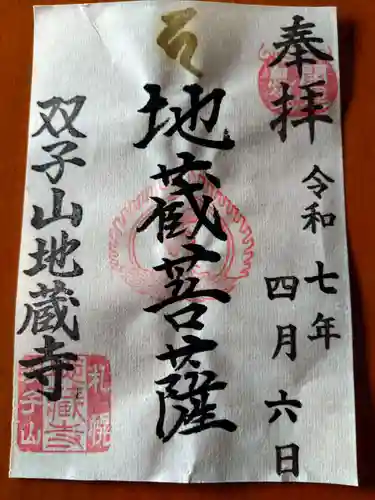 奉拝
令和七年
四月六日
地蔵菩薩
双子山地蔵寺
札所